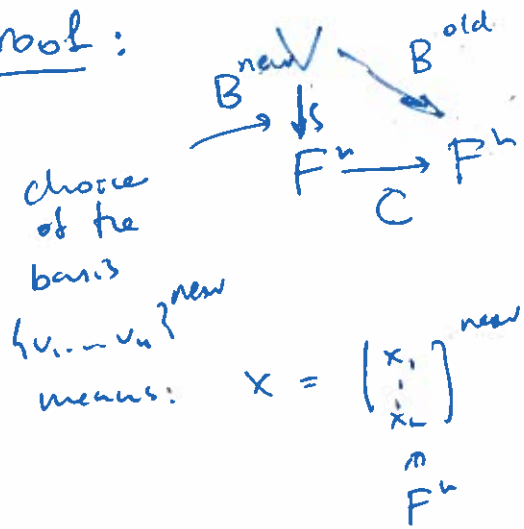 Proof :
V
B^new B^old
F^n F^n
C
choice
of the
basis
{v₁ ... vₙ}^new
means: x = [x₁ ⋮ xₙ]^new
F^n